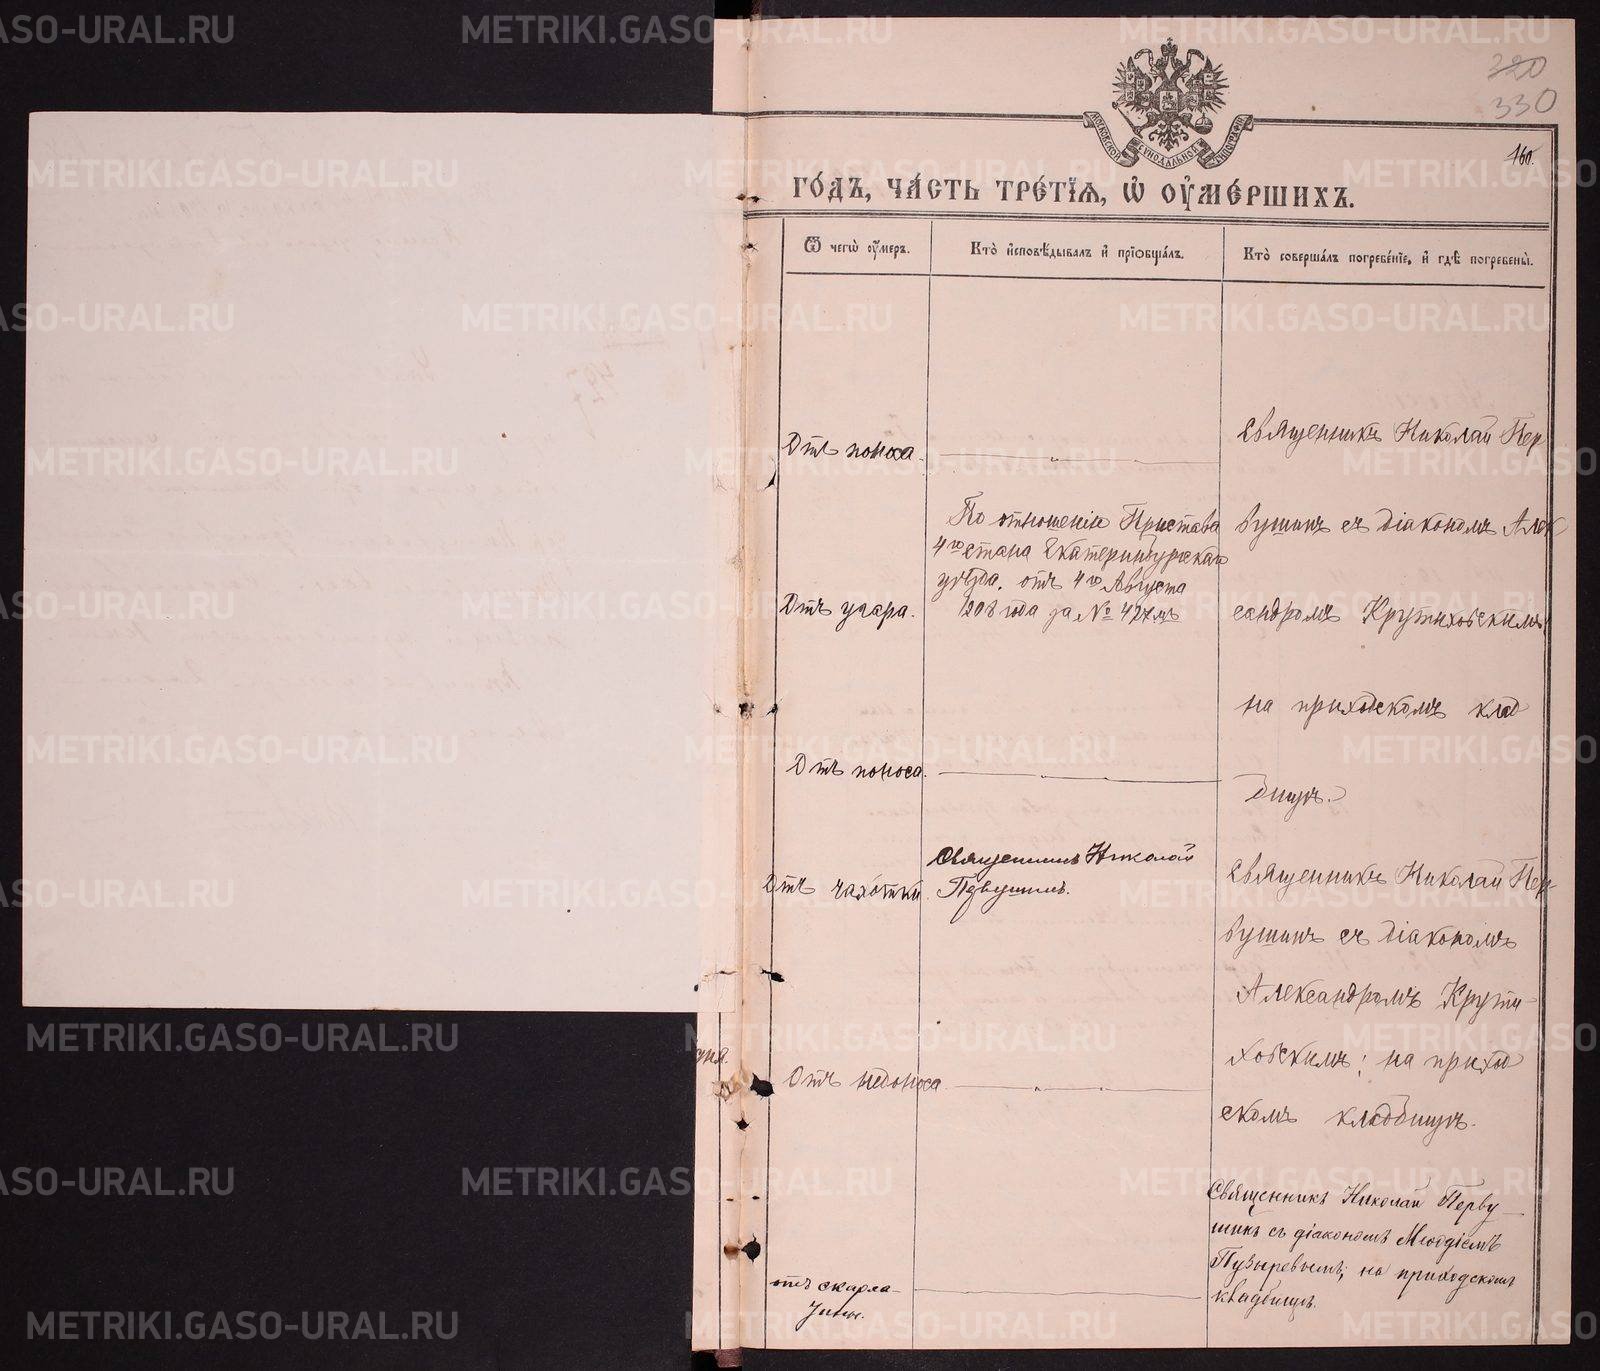 320
330
МОСКОВСКОЙ СѴНОДАЛЬНОЙ ТИПОГРАФІИ
160.
ГО́ДЪ, ЧА́СТЬ ТРЕ́ТІѦ, Ѡ҆ ОУ҆МЕ́РШИХЪ.
Ѿ чегѡ̀ оу҆́меръ.
Кто̀ и҆сповѣ́дывалъ и҆ прїѡбща́лъ.
Кто̀ соверша́лъ погребе́нїе, и҆ гдѣ̀ погребены̀.
Отъ поноса.
Священникъ Николай Пер
вушинъ съ діакономъ Алек
сандромъ Крутиховскимъ
на приходскомъ клад
бищѣ.
По отношенію Пристава
4го стана Екатеринбургскаго
уѣзда. отъ 4го Августа
1908 года за № 427мъ
Отъ угара.
Отъ поноса.
Отъ чахотки
Священникъ Николай
Первушинъ.
Священникъ Николай Пер-
вушинъ съ діакономъ
Александромъ Крути-
ховскимъ; на приход
скомъ кладбищѣ.
дня.
Отъ недоноса
отъ скарла-
тины.
Священникъ Николай Перву
шинъ съ діакономъ Меѳодіемъ
Пузыревымъ; на приходскомъ
кладбищѣ.
METRIKI.GASO-URAL.RU